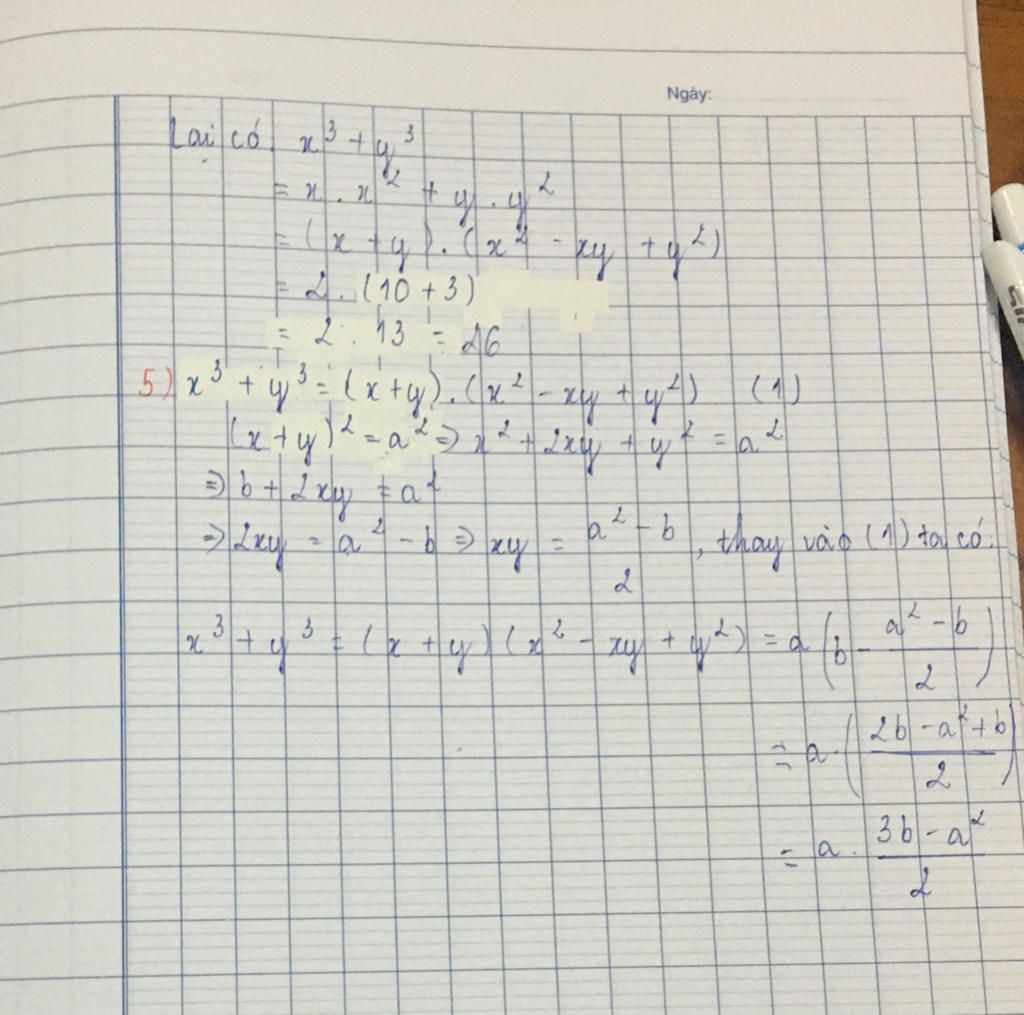 Ngày:
Lại có x³ + y³
= x . x² + y . y²
= (x + y) . (x² - xy + y²)
= 2 . (10 + 3)
= 2 . 13 = 26
5) x³ + y³ = (x + y) . (x² - xy + y²) (1)
(x + y)² = a² => x² + 2xy + y² = a²
=> b + 2xy = a²
=> 2xy = a² - b => xy = (a² - b)/2, thay vào (1) ta có:
x³ + y³ = (x + y) (x² - xy + y²) = a (b - (a² - b)/2)
= a . ((2b - a² + b)/2)
= a . (3b - a²)/2